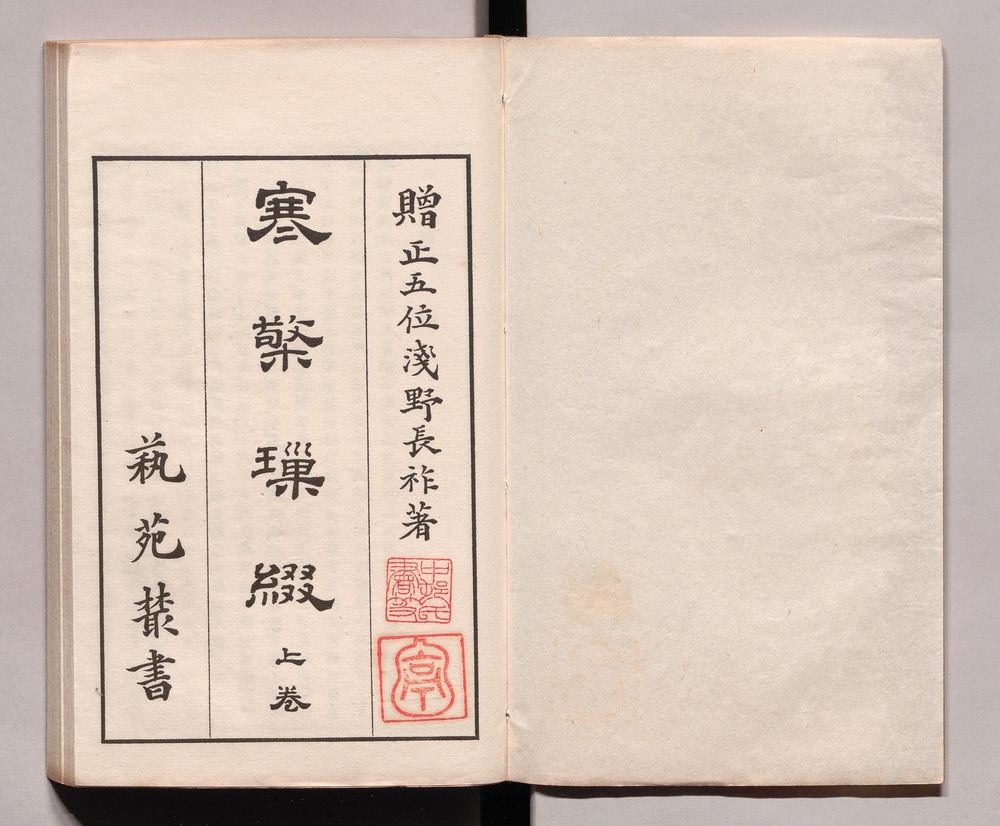 贈正五位淺野長祚著
寒檠璅綴 上卷
蓺苑叢書